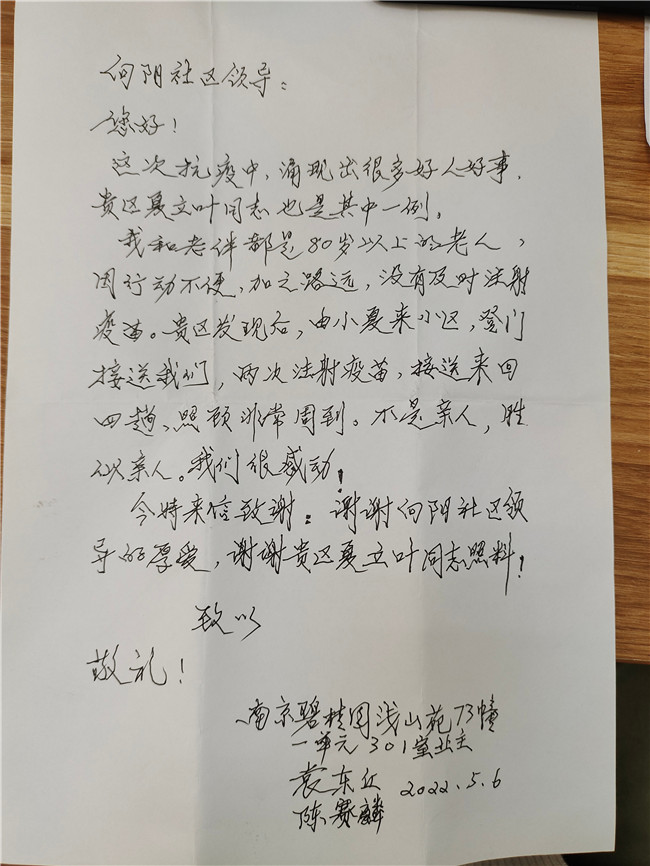 向阴社区领导：
您好！
这次抗疫中，涌现出很多好人好事，
贵区夏立叶同志也是其中一例。
我和老伴都是80岁以上的老人，
因行动不便，加之路远，没有及时注射
疫苗。贵区发现后，由小夏来小区，登门
接送我们，两次注射疫苗，接送来回
四趟、照顾非常周到。不是亲人，胜
似亲人。我们很感动！
今特来信致谢：谢谢向阴社区领
导的厚爱，谢谢贵区夏立叶同志照料！
致以
敬礼！
南京碧桂园浅山苑73幢
一单元301室业主
袁东丘 2022.5.6
陈赛麟